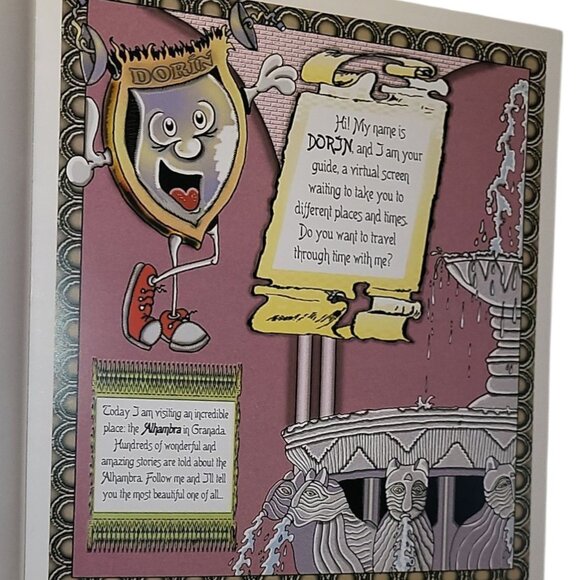 DORÍN
Hi! My name is
DORÍN, and I am your
guide, a virtual screen
waiting to take you to
different places and times.
Do you want to travel
through time with me?
Today I am visiting an incredible
place: the Alhambra in Granada.
Hundreds of wonderful and
amazing stories are told about the
Alhambra. Follow me and I'll tell
you the most beautiful one of all...